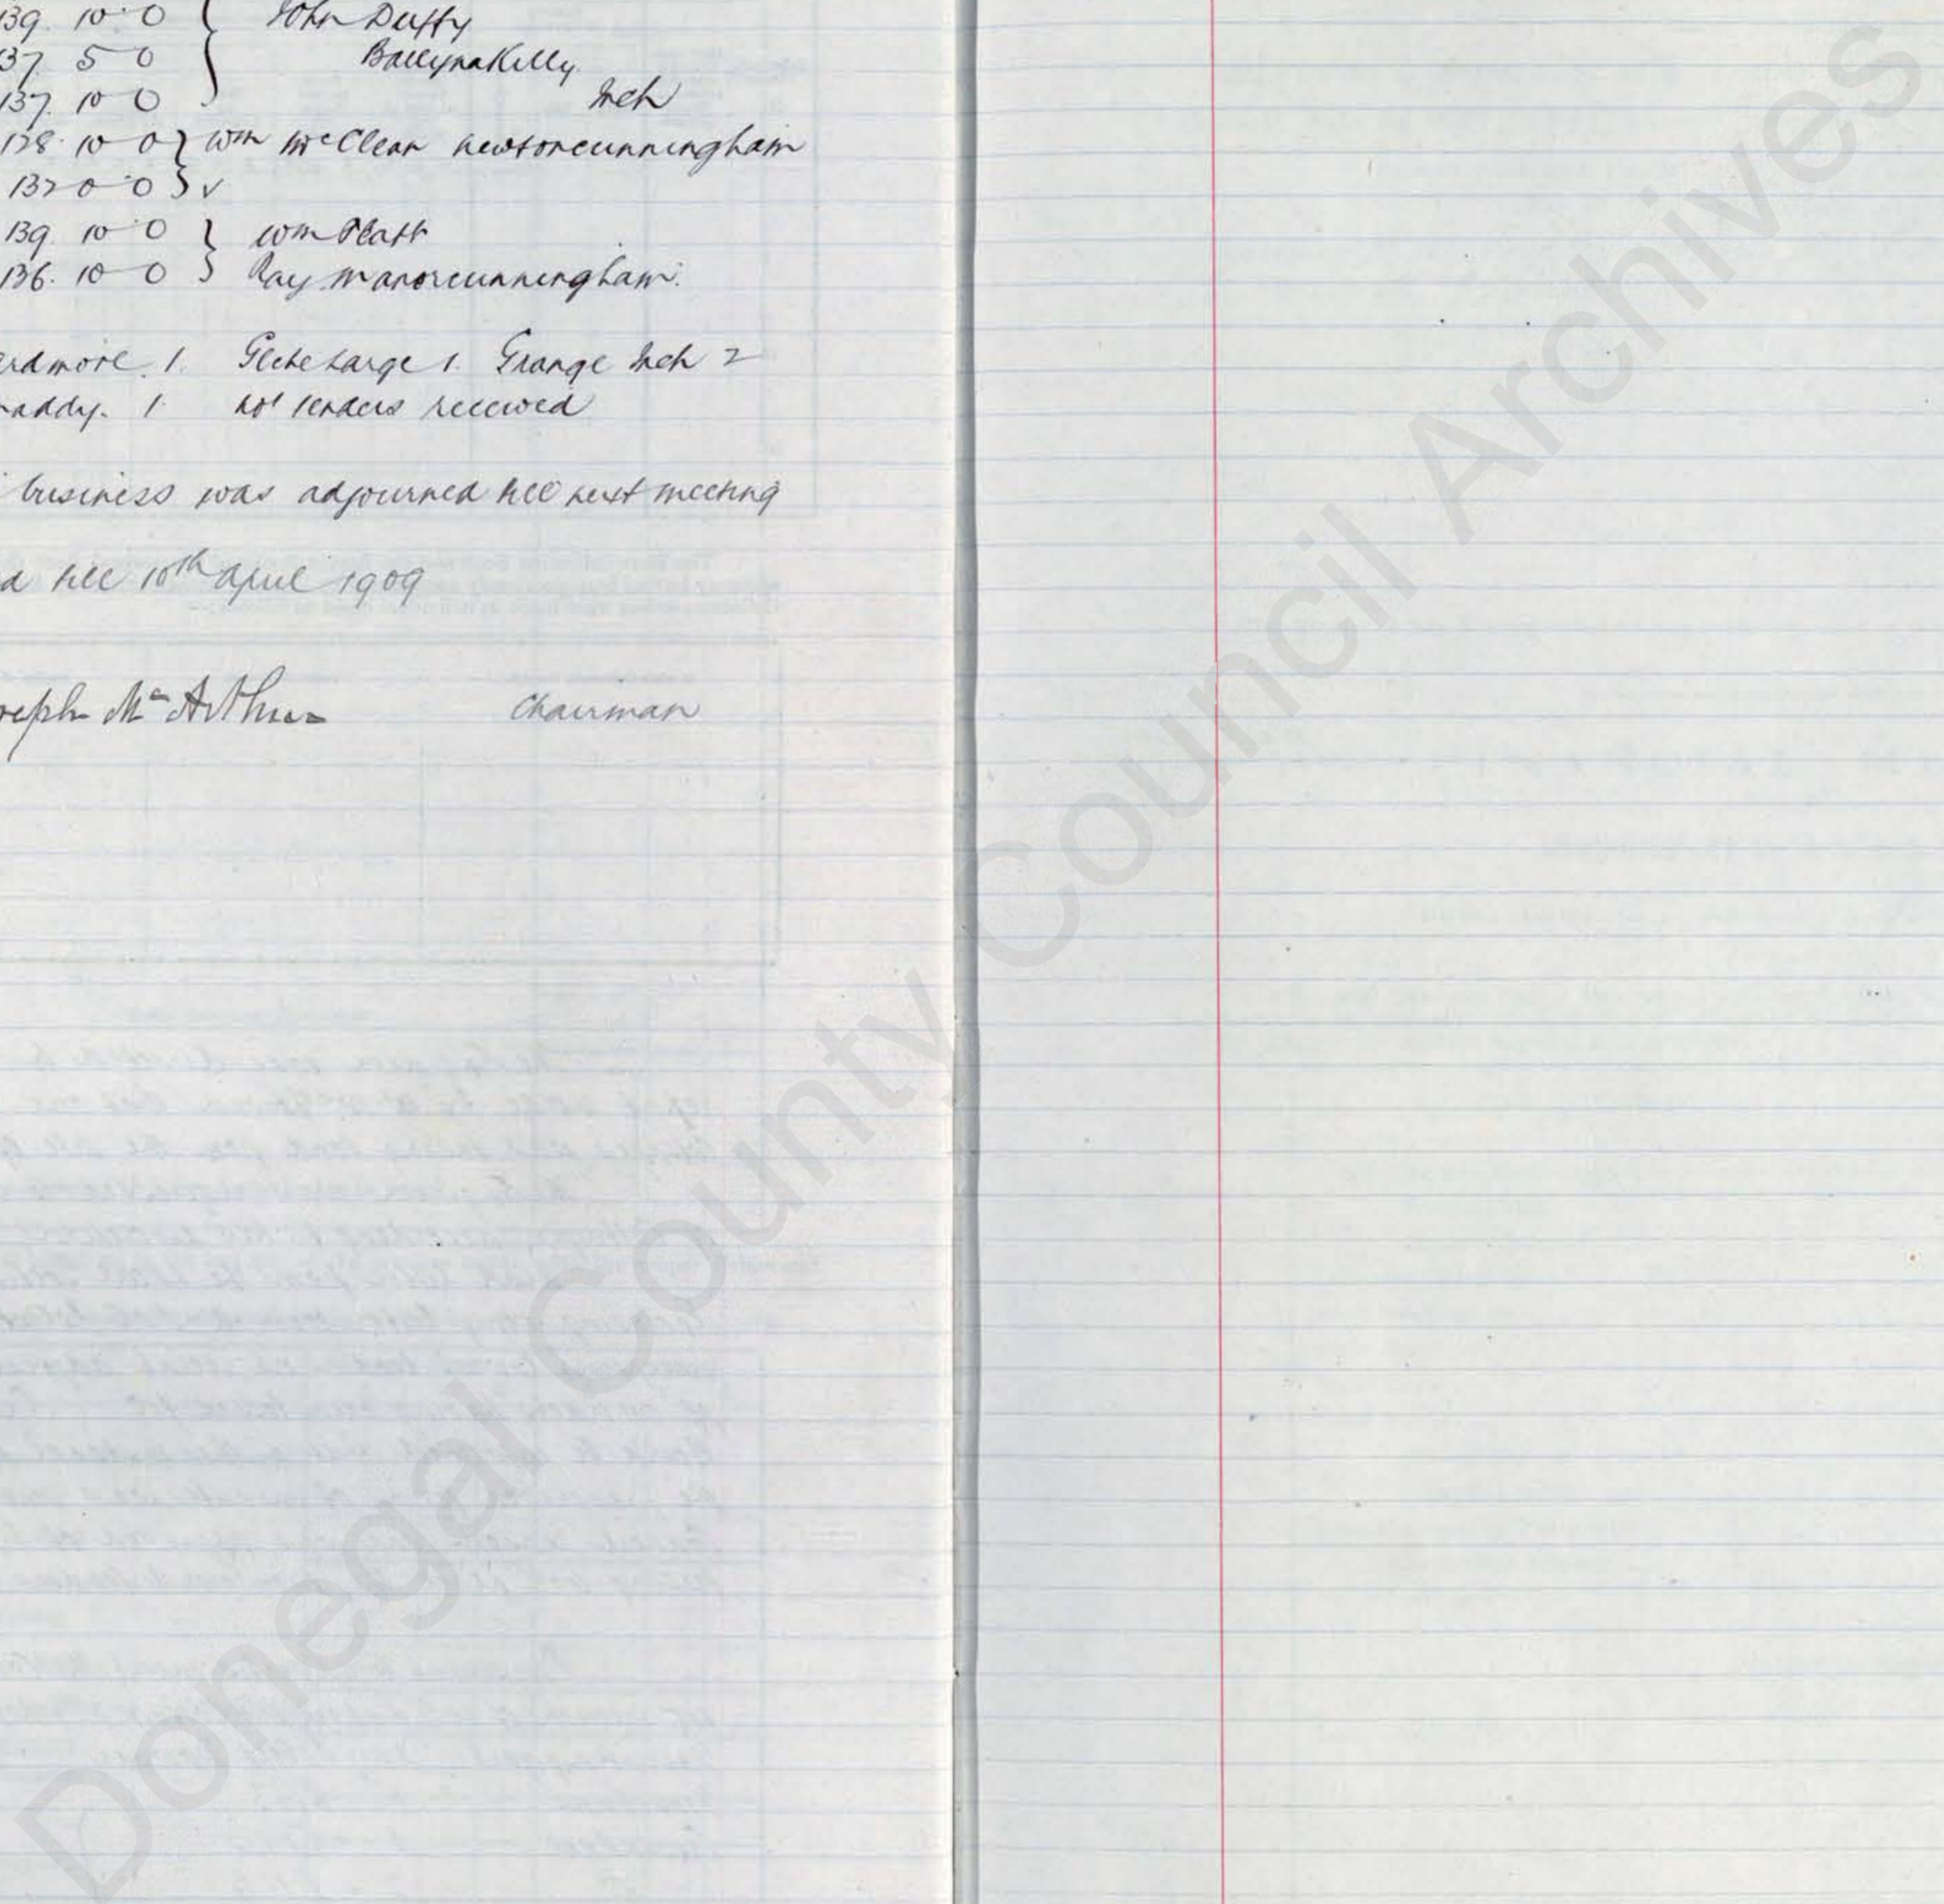 139. 10 0 } John Duffy
137 5 0 Ballynakelly
137. 10 0 Inch
128. 10 0 } Wm McClean newtoncunningham
132 0 0 } v
139. 10 0 } Wm Platt
136. 10 0 } Ray manorcunningham.
ardmore. 1. Glebe Large 1. Grange Inch 2
raddy. 1 not tenders received
business was adjourned till next meeting
d till 10th april 1909
oseph McArthur Chairman
Donegal County Council Archives